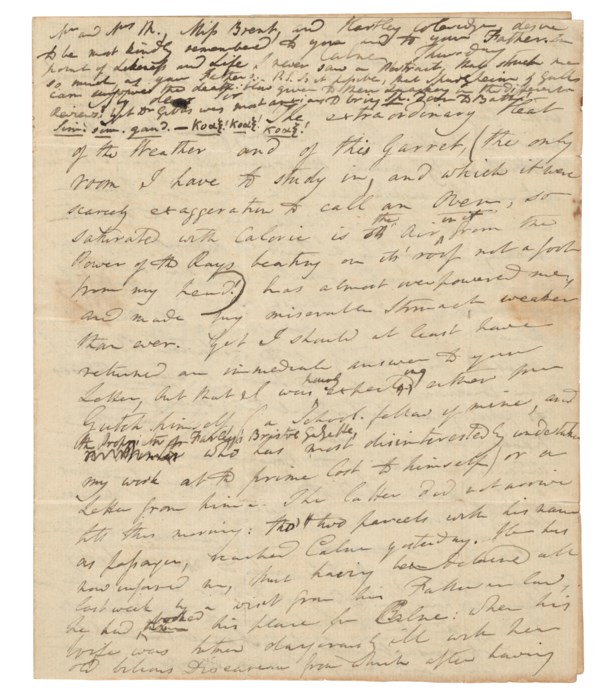 Mr and Mrs M., Miss Brent, and Hartley Coleridge desire
to be most kindly remembered to you and to your Father. In
Calne, Thursday
point of Likeness and Life I never saw a Portrait, that struck me
so much as your Father's. — P.S. Is it possible, that
can
Reviews? Yet Dr Gibbs was most anxious to bring
Sim: sim. gaud. — Κοάξ! Κοάξ! Κοάξ!
The extraordinary Heat
of the Weather and of this Garret, (the only
room I have to study in, and which it were
scarcely exaggeration to call an Oven, so
saturated with Caloric is the Air in it from the
Power of the Rays beating on its roof not a foot
from my head!) has almost overpowered me,
and made my miserable Stomach weaker
than ever. Yet I should at least have
returned an immediate answer to your
Letter, but that I was hourly expecting either from
Gutch himself (a School-fellow of mine, and
the Proprietor of Bristol Gazette,
who has most disinterestedly undertaken
my work at the prime Cost to himself) or a
Letter from him. The latter did not arrive
till this morning: tho' two parcels with his name
as passenger, reached Calne yesterday. He has
now informed me, that having been detained all
last week by a visit from his Father in law,
he had booked his place for Calne: when his
Wife was taken dangerously ill with her
old bilious Disease from which after having